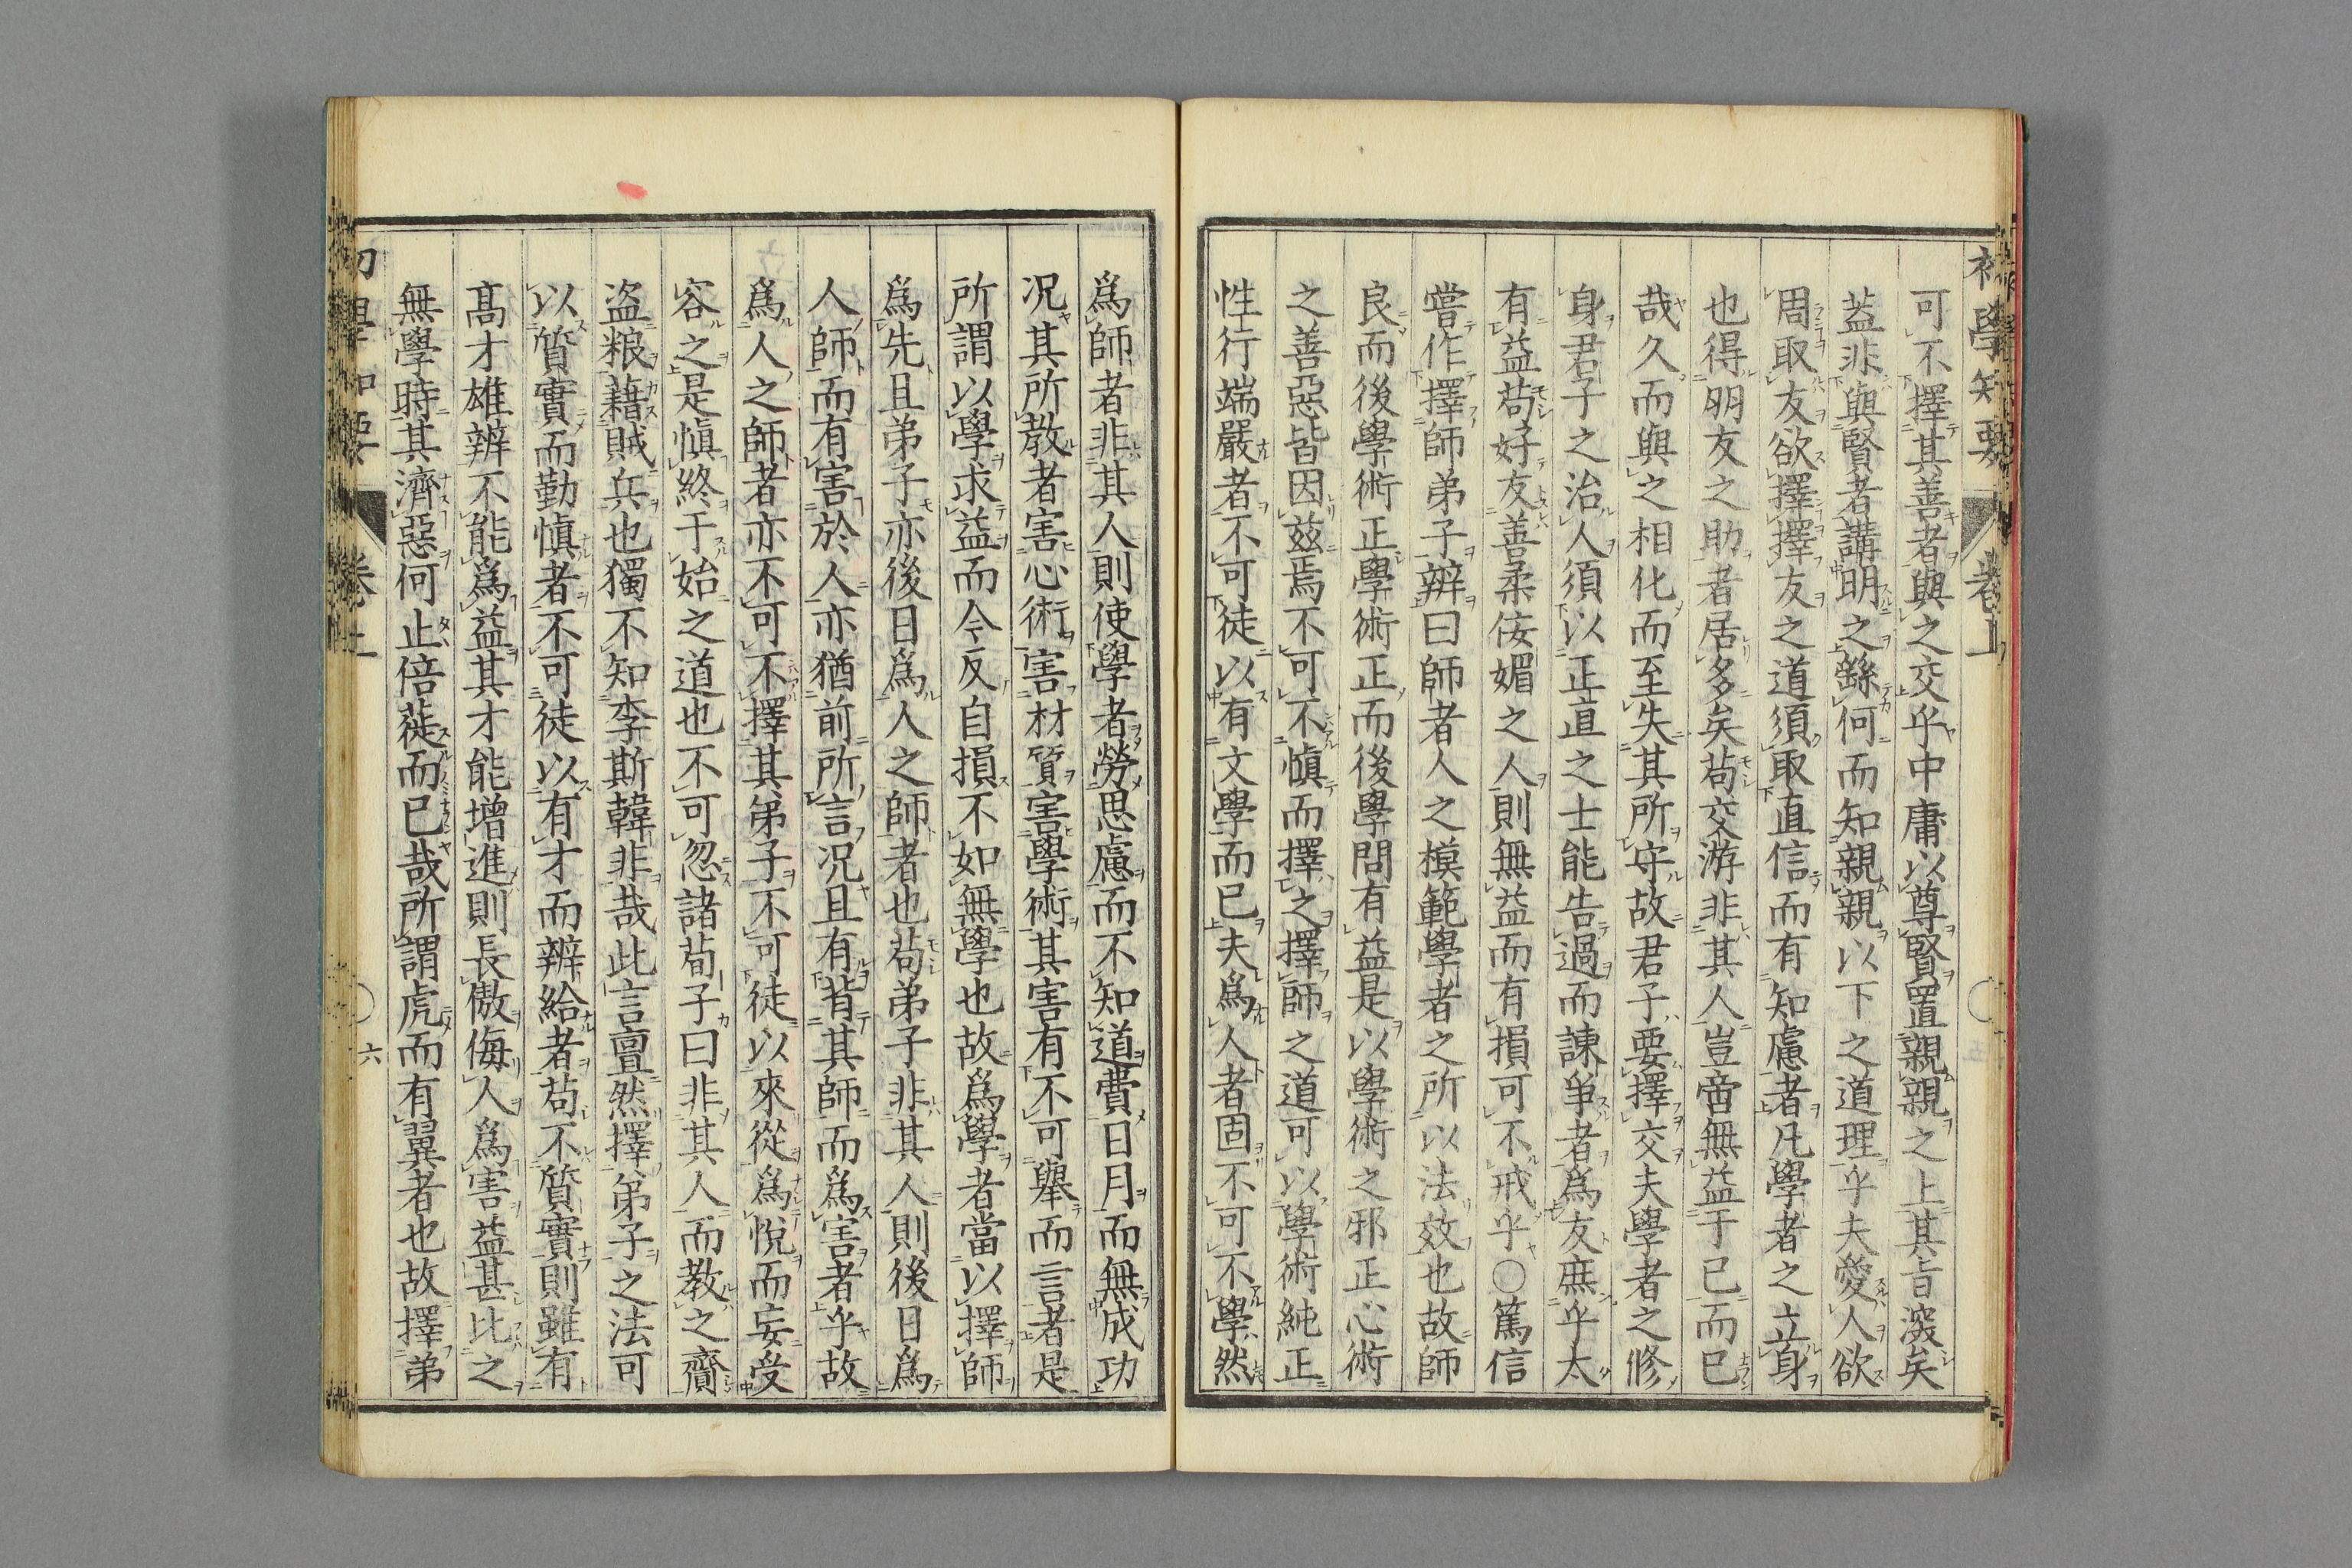 初學知要 卷上
可不擇其善者與之交乎中庸以尊賢置親親之上其旨深矣
蓋非與賢者講明之繇何而知親親以下之道理乎夫愛人欲
周取友欲擇擇友之道須取直信而有知慮者凡學者之立身
也得朋友之助者居多矣苟交游非其人豈啻無益于已而已
哉久而與之相化而至失其所守故君子要擇交夫學者之修
身君子之治人須以正直之士能告過而諫爭者爲友庶乎太
有益苟好友善柔侫媚之人則無益而有損可不戒乎〇篤信
嘗作擇師弟子辨曰師者人之模範學者之所以法效也故師
良而後學術正學術正而後學問有益是以學術之邪正心術
之善惡皆因茲焉不可不愼而擇之擇師之道可以學術純正
性行端嚴者不可徒以有文學而已夫爲人者固不可不學然
爲師者非其人則使學者勞思慮而不知道費日月而無成功
況其所教者害心術害材質害學術其害有不可舉而言者是
所謂以學求益而今反自損不如無學也故爲學者當以擇師
爲先且弟子亦後日爲人之師者也苟弟子非其人則後日爲
人師而有害於人亦猶前所言況且有背其師而爲害者乎故
爲人之師者亦不可不擇其弟子不可徒以來從爲悅而妄受
容之是愼終于始之道也不可忽諸荀子曰非其人而教之齎
盗粮藉賊兵也獨不知李斯韓非哉此言亶然擇弟子之法可
以質實而勤愼者不可徒以有才而辨給者苟不質實則雖有
髙才雄辨不能爲益其才能增進則長傲侮人爲害益甚比之
無學時其濟惡何止倍蓰而已哉所謂虎而有翼者也故擇弟
初學知要 卷上 六